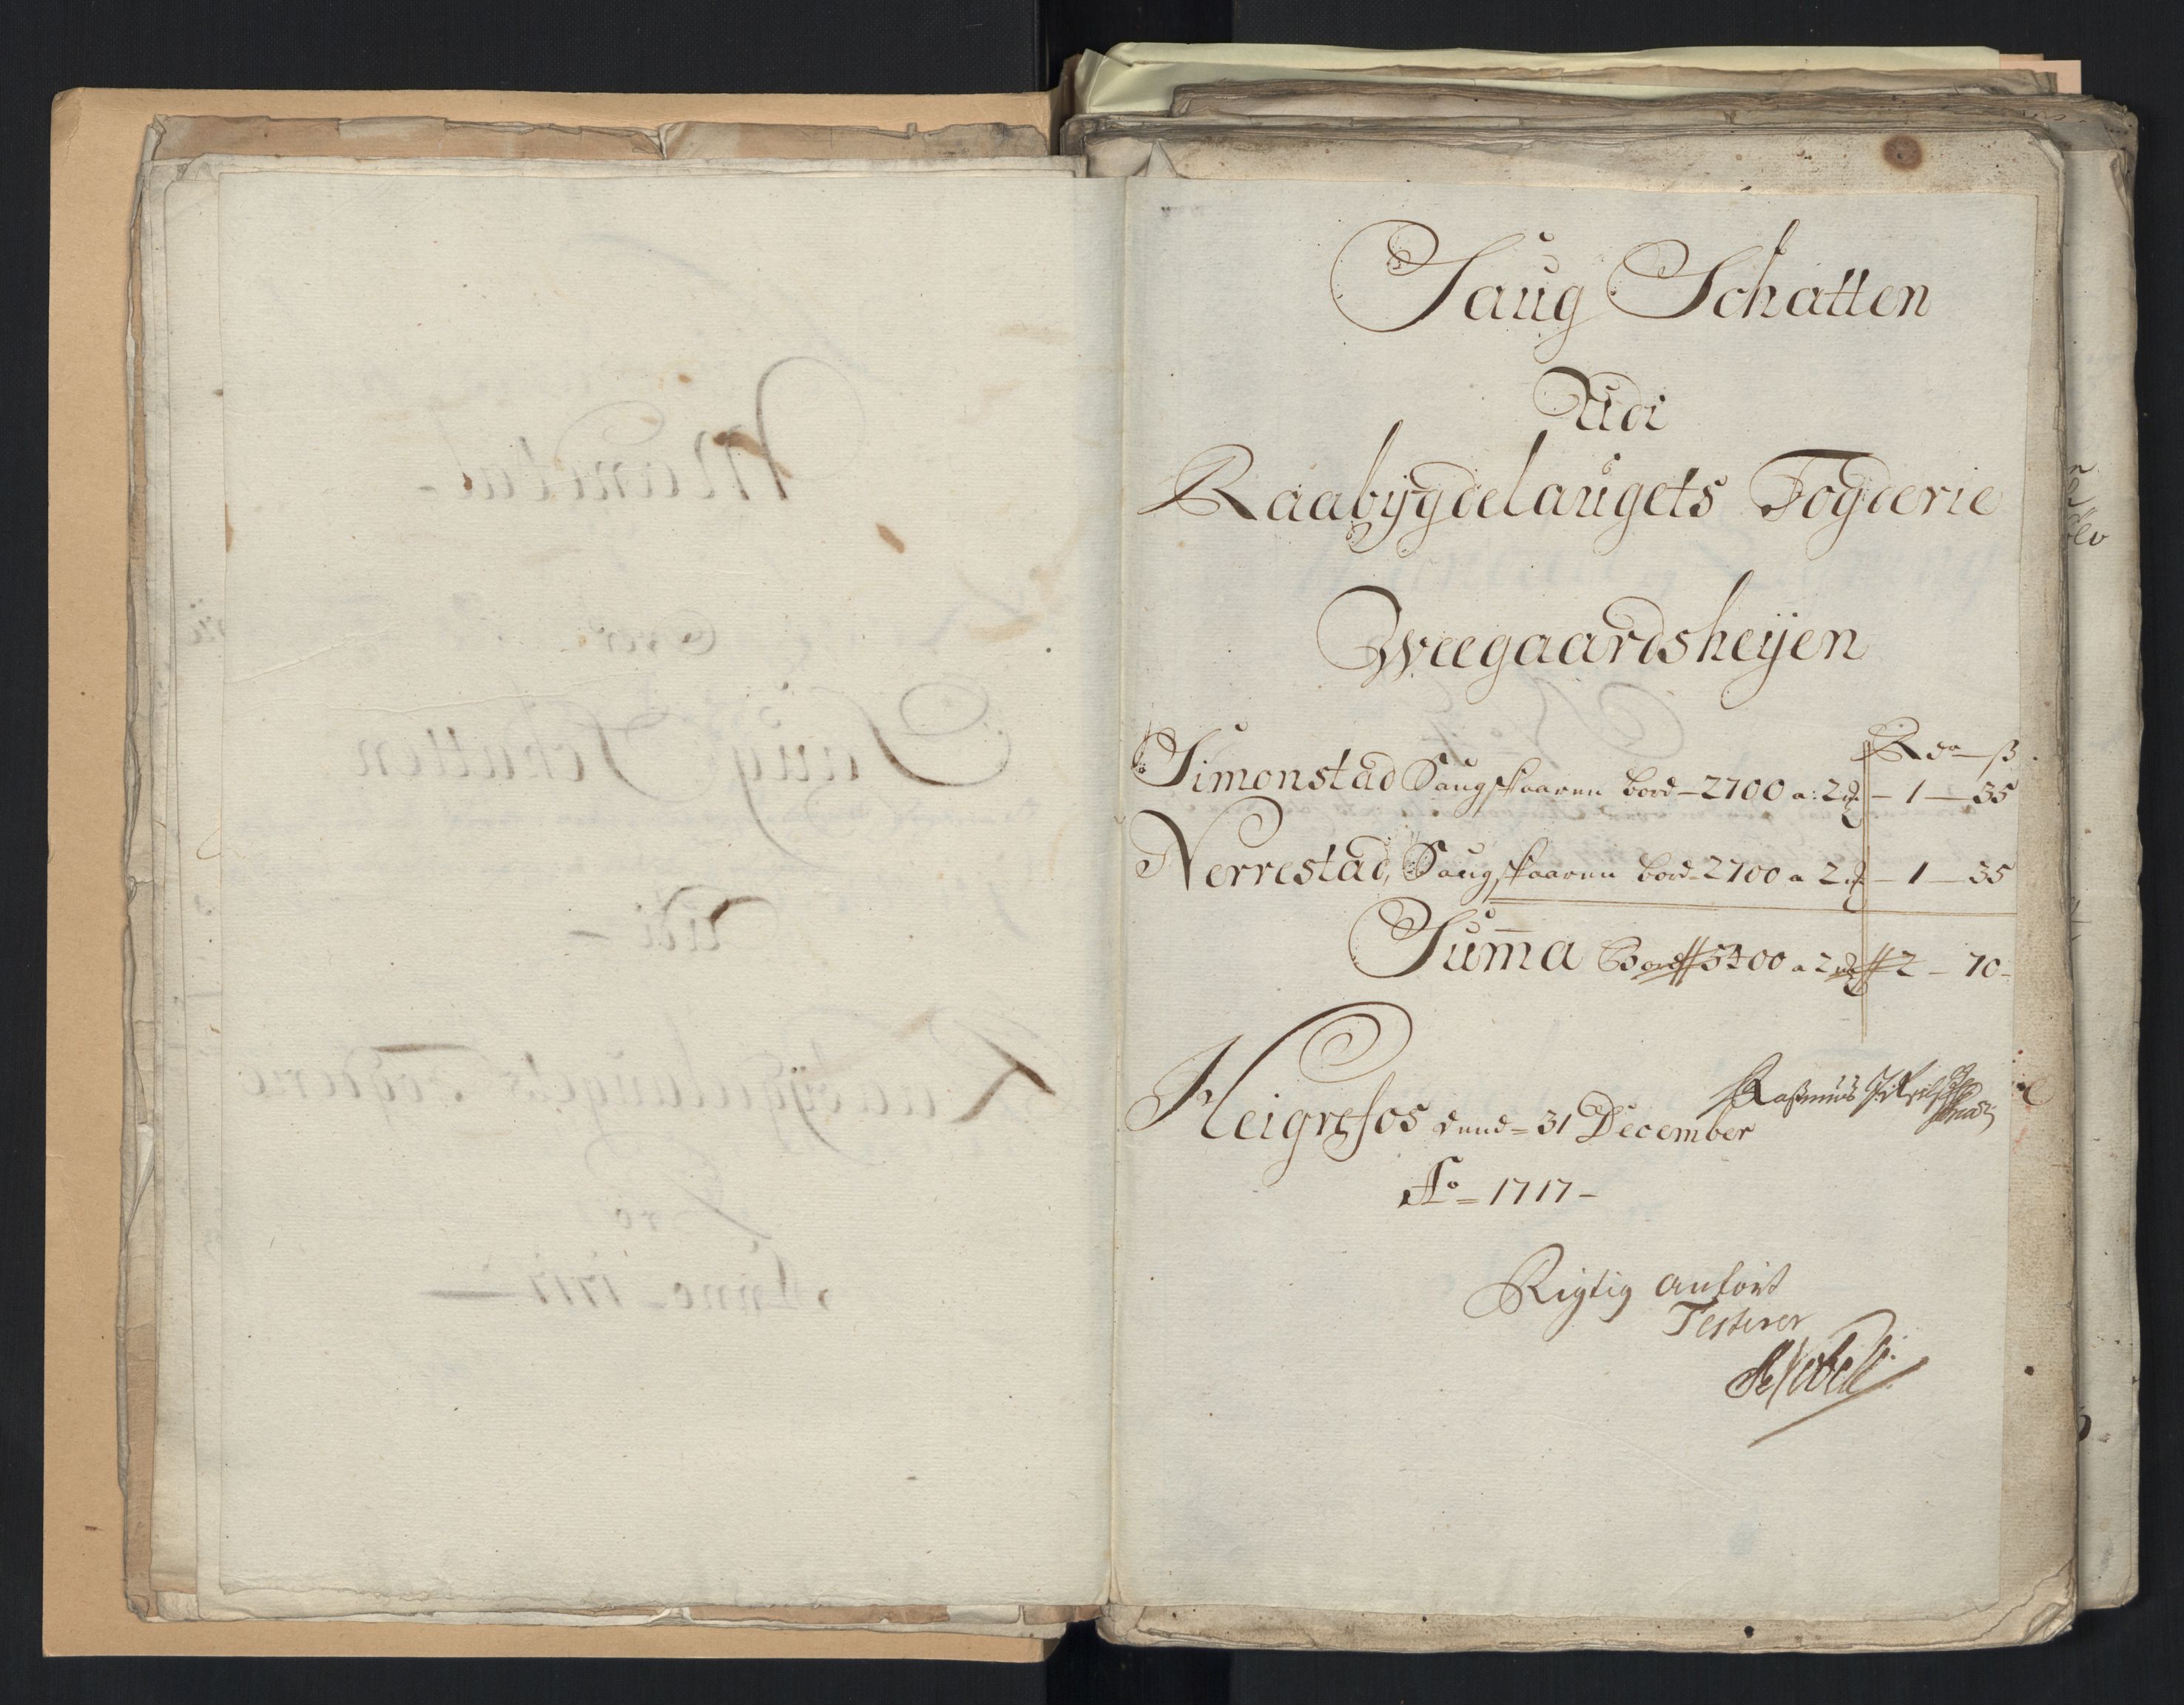 Saug Schatten
Udi
Raabÿgdelaugets Fogderie
Weegaardsheÿen
Rdr — ß
Simonstad Saug skaaren bord – 2700 a: 2 – 1 — 35
Nerrestad, Saug skaaren bord – 2700 a 2 – 1 — 35
Sum̄a Bord 5400 a 2 2 – 70 –
Heigrefos dend = 31 December
Rasmus
Ao = 1717 –
Rigtig anført
Testerer